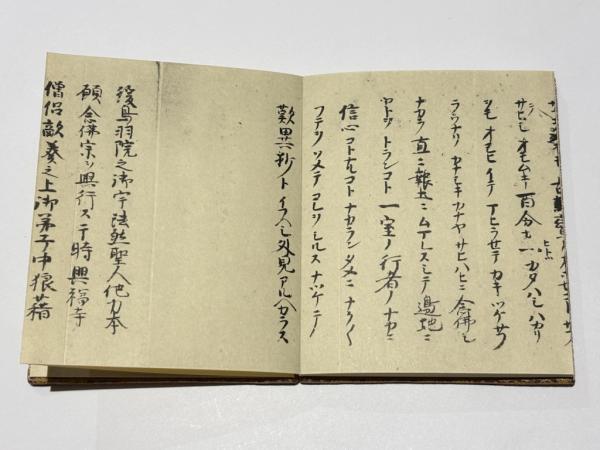 サヒシオモムキ百分カ一カタハシハカリ
ヲモオモヒイテマヒラセテカキツケサフ
ラウナリカナシキカナヤサヒハヒニ念佛シ
ナカラ直ニ報土ニムマレスシテ邊地ニ
ヤトヲトランコト一室ノ行者ノナカニ
信心コトナルコトナカランタメニナク〱
フテヲソメテコレヲシルスナツケテ
歎異抄トイフヘシ外見アルヘカラス
後鳥羽院之御宇法然聖人他力本
願念佛宗ヲ興行ス于時興福寺
僧侶敵奏之上御弟子中狼藉